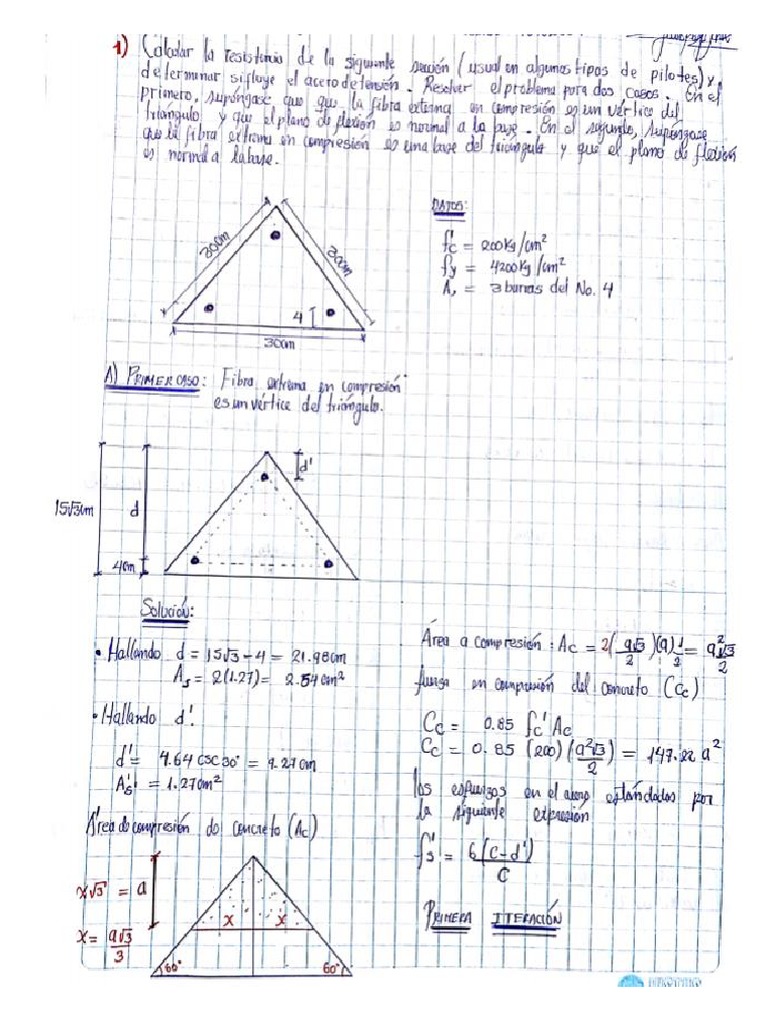 1) Calcular la resistencia de la siguiente sección (usual en algunos tipos de pilotes) y,
determinar si fluye el acero de tensión. Resolver el problema para dos casos. En el
primero, supóngase que que la fibra externa en compresión es un vértice del
triángulo y que el plano de flexión es normal a la base. En el segundo, supóngase
que la fibra extrema en compresión es una base del triángulo y que el plano de flexión
es normal a la base.
30cm
30cm
4
30cm
DATOS:
f'c = 200Kg/cm²
fy = 4200Kg/cm²
As = 3 barras del No. 4
A) PRIMER CASO: Fibra extrema en compresión
es un vértice del triángulo.
15√3cm
d
4cm
d'
Solución:
• Hallando d = 15√3 - 4 = 21.98cm
As = 2(1.27) = 2.54cm²
• Hallando d'
d' = 4.64 csc30° = 9.27cm
A's = 1.27cm²
Área de compresión do concreto (Ac)
x√3 = a
x = a√3/3
x x
60° 60°
Área a compresión: Ac = 2(a√3/2)(a)1/2 = a²√3/2
fuerza en compresión del concreto (Cc)
Cc = 0.85 f'c Ac
Cc = 0.85 (200)(a²√3/2) = 147.22 a²
los esfuerzos en el acero están dados por
la siguiente expresión
f's = 6(c-d')/c
PRIMERA ITERACIÓN